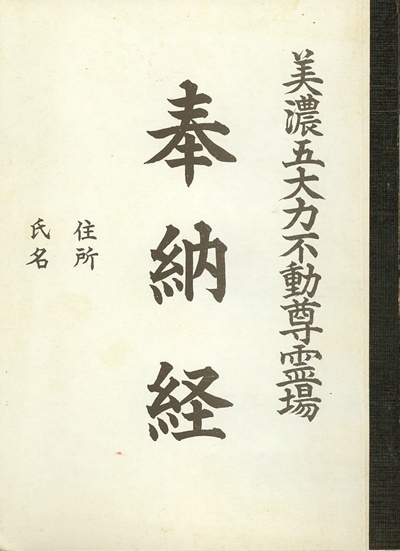 美濃五大力不動尊霊場
奉納経
住所
氏名